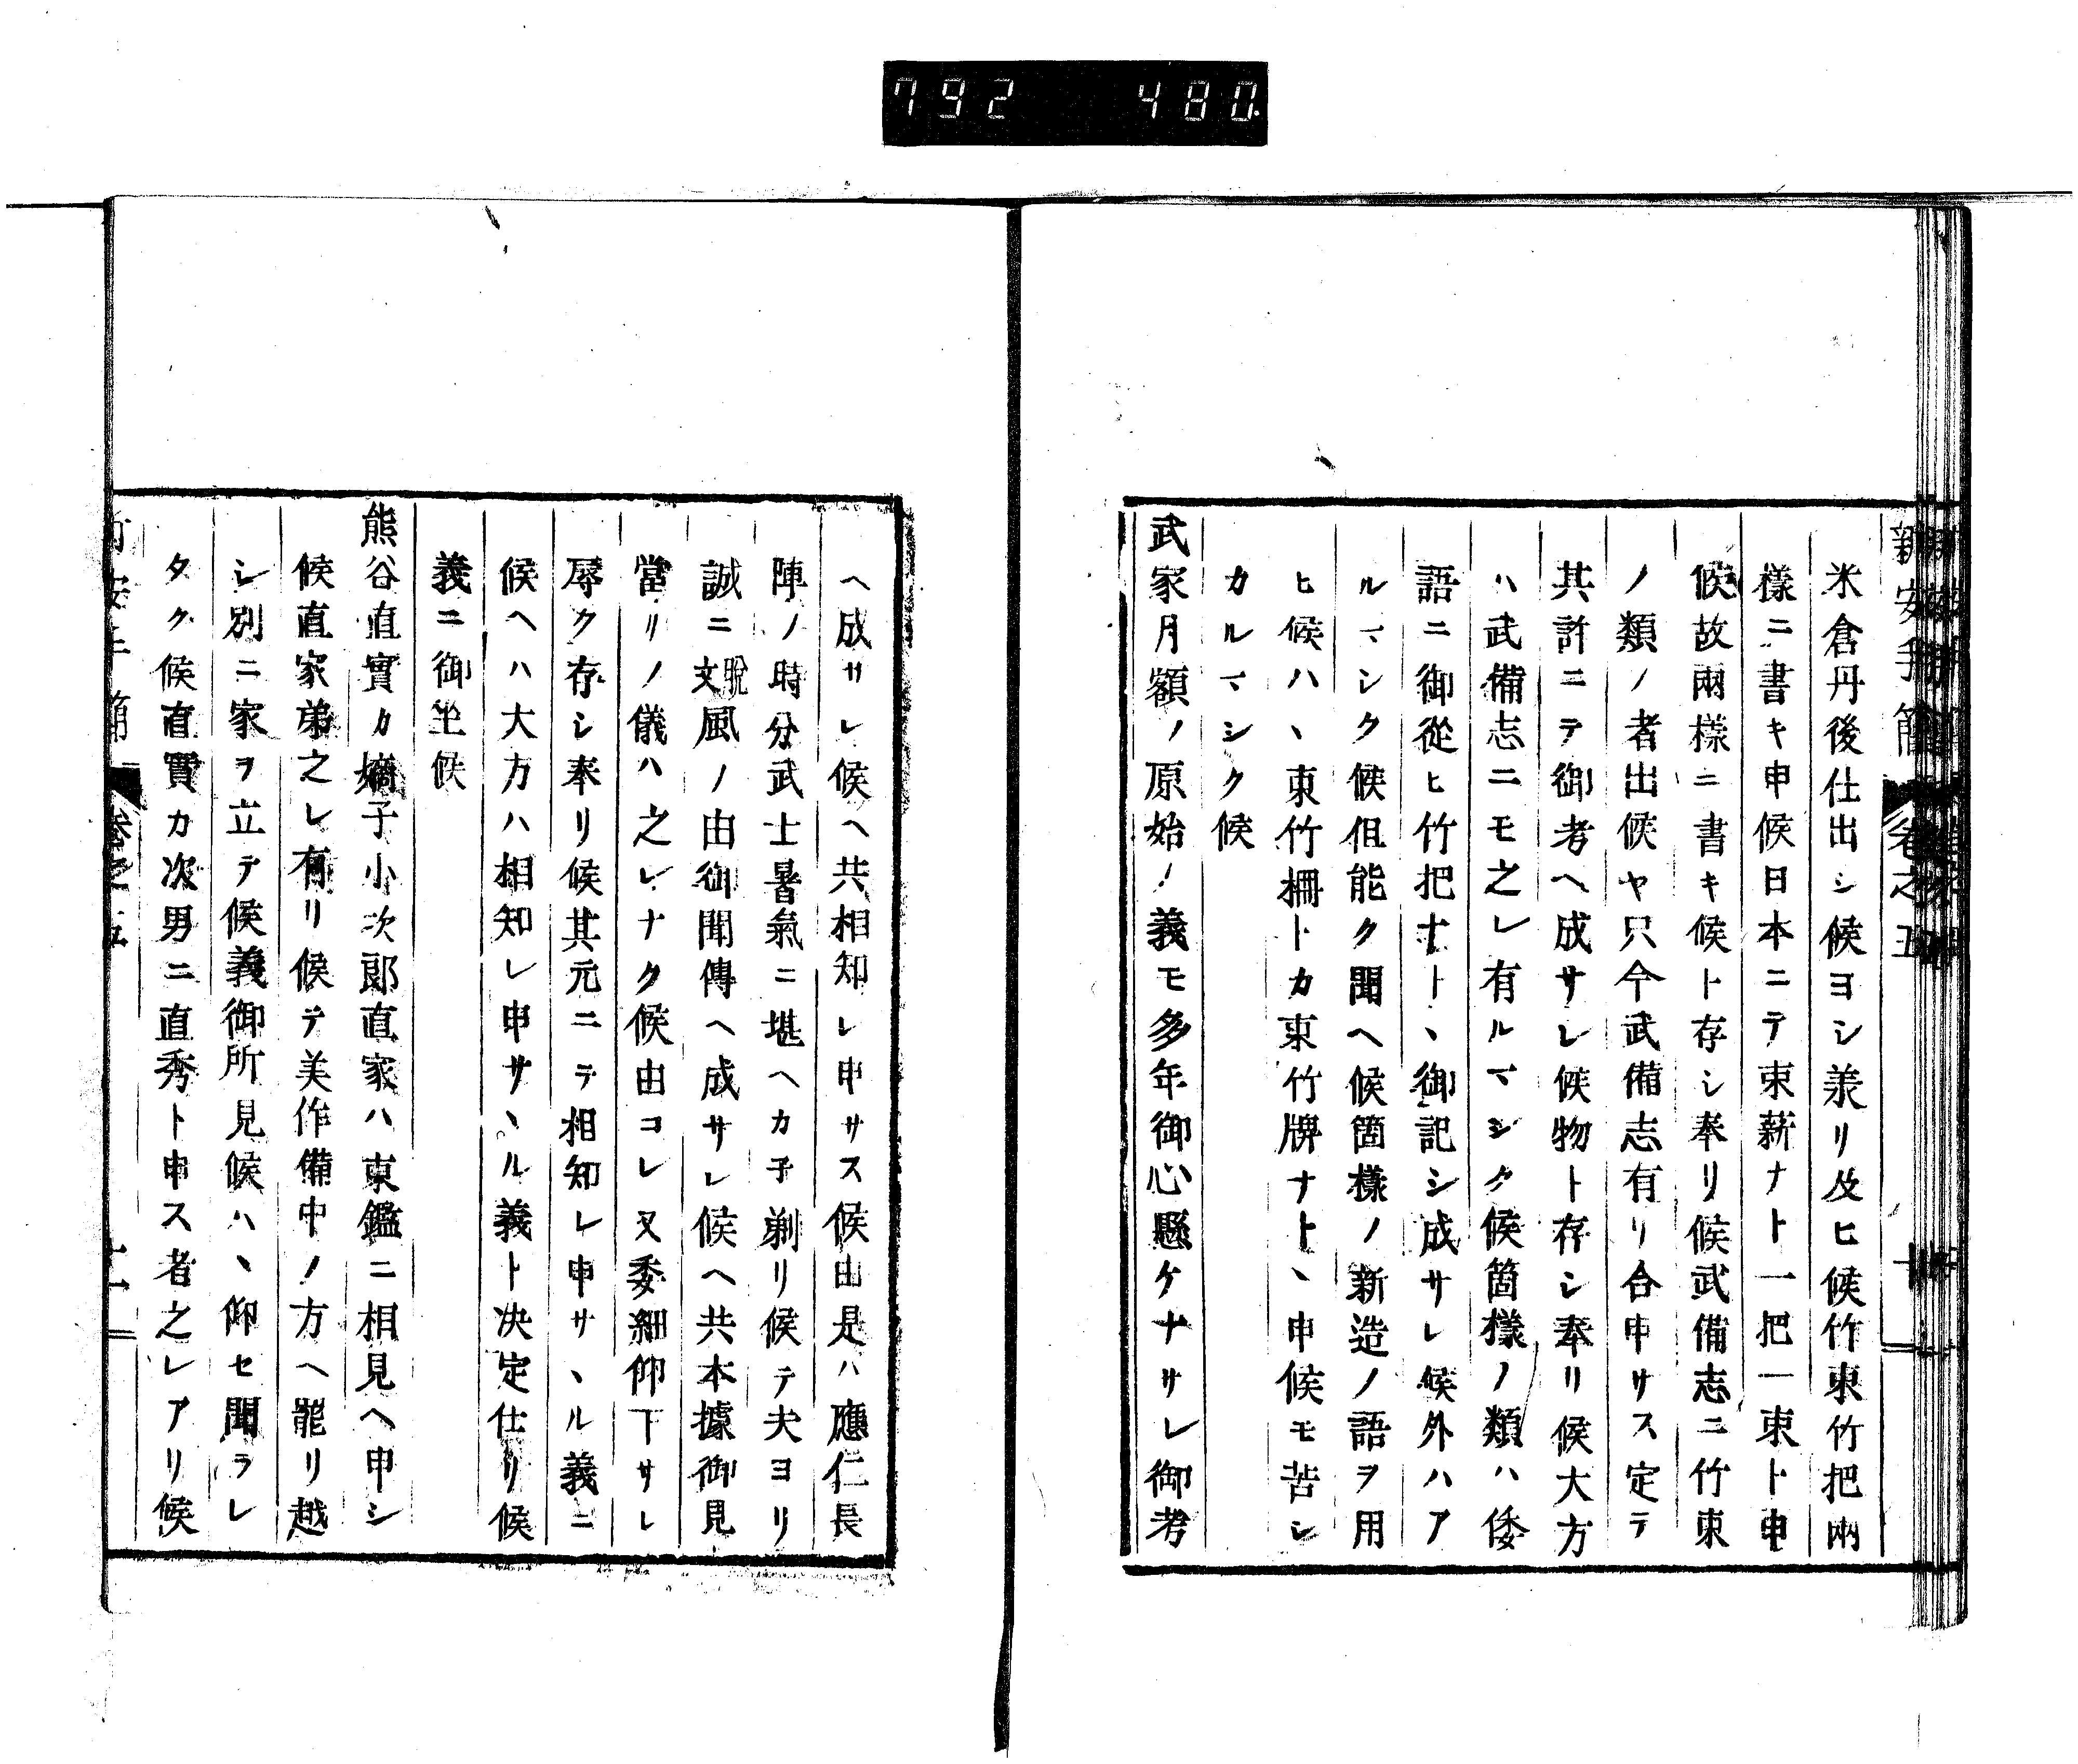 792 480
新安手簡 卷之五 十
米倉丹後仕出シ候ヨシ羕リ及ヒ候竹束竹把兩
樣ニ書キ申候日本ニテ束薪ナト一把一束ト申
候故兩樣ニ書キ候ト存シ奉リ候武備志ニ竹束
ノ類ノ者出候ヤ只今武備志有リ合申サス定テ
共許ニテ御考ヘ成サレ候物ト存シ奉リ候大方
ハ武備志ニモ之レ有ルマシク候箇樣ノ類ハ倭
語ニ御從ヒ竹把ナトヽ御記シ成サレ候外ハア
ルマシク候但能ク聞ヘ候箇樣ノ新造ノ語ヲ用
ヒ候ハヽ束竹柵トカ束竹牌ナトヽ申候モ苦シ
カルマシク候
武家月額ノ原始ノ義モ多年御心懸ケナサレ御考
ヘ成サレ候ヘ共相知レ申サス候由是ハ應仁長
陣ノ時分武士暑氣ニ堪ヘカ子剃リ候テ夫ヨリ
誠ニ脫文風ノ由御聞傳ヘ成サレ候ヘ共本據御見
當リノ儀ハ之レナク候由コレ又委細仰下サレ
辱ク存シ奉リ候其元ニテ相知レ申サヽル義ニ
候ヘハ大方ハ相知レ申サヽル義ト决定仕リ候
義ニ御坐候
熊谷直實カ嫡子小次郎直家ハ東鑑ニ相見ヘ申シ
候直家弟之レ有リ候テ美作備中ノ方ヘ罷リ越
シ別ニ家ヲ立テ候義御所見候ハヽ仰セ聞ラレ
タク候直實カ次男ニ直秀ト申ス者之レアリ候